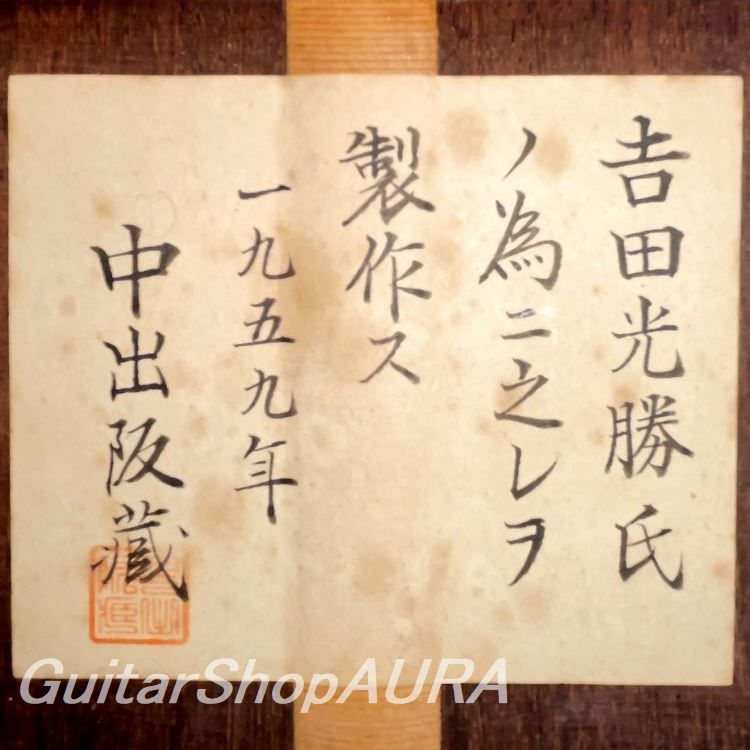 𠮷田光勝氏
ノ為ニ之レヲ
製作ス
一九五九年
中出阪蔵
GuitarShopAURA